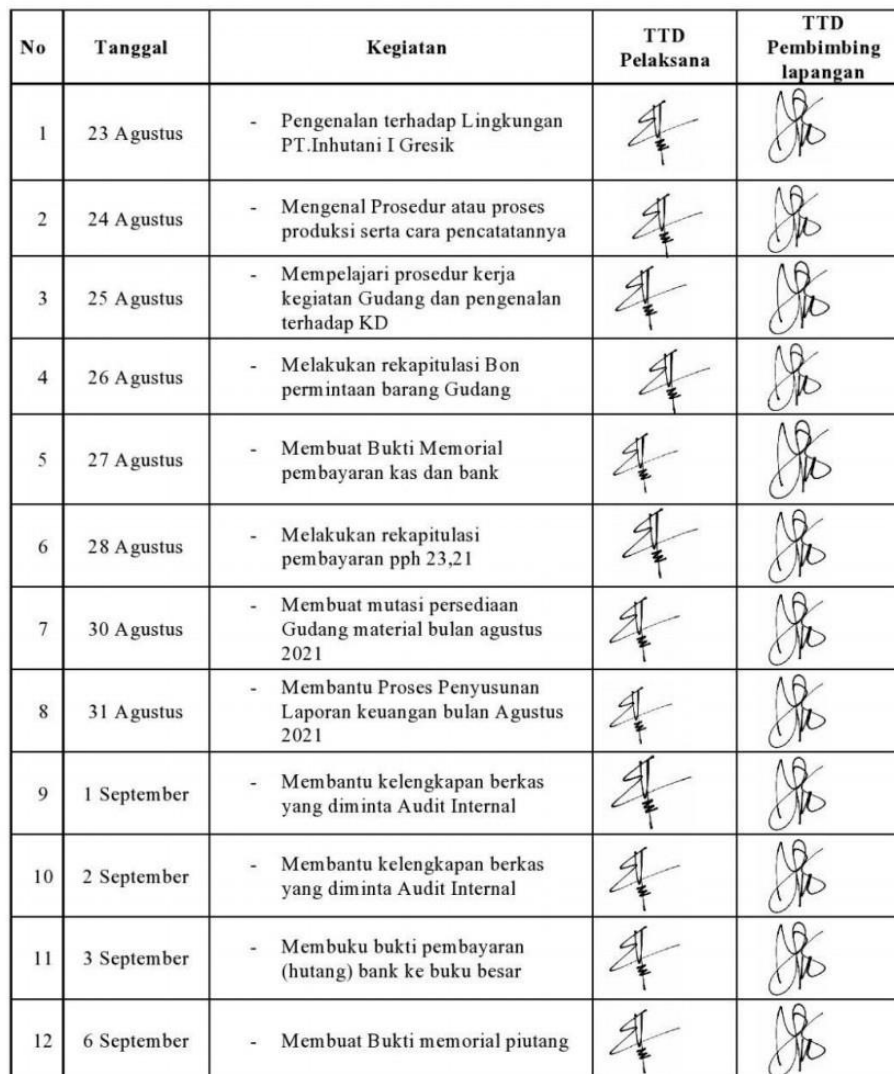 No
Tanggal
Kegiatan
TTD
Pelaksana
TTD
Pembimbing
lapangan
1
23 Agustus
- Pengenalan terhadap Lingkungan
PT.Inhutani I Gresik
2
24 Agustus
- Mengenal Prosedur atau proses
produksi serta cara pencatatannya
3
25 Agustus
- Mempelajari prosedur kerja
kegiatan Gudang dan pengenalan
terhadap KD
4
26 Agustus
- Melakukan rekapitulasi Bon
permintaan barang Gudang
5
27 Agustus
- Membuat Bukti Memorial
pembayaran kas dan bank
6
28 Agustus
- Melakukan rekapitulasi
pembayaran pph 23,21
7
30 Agustus
- Membuat mutasi persediaan
Gudang material bulan agustus
2021
8
31 Agustus
- Membantu Proses Penyusunan
Laporan keuangan bulan Agustus
2021
9
1 September
- Membantu kelengkapan berkas
yang diminta Audit Internal
10
2 September
- Membantu kelengkapan berkas
yang diminta Audit Internal
11
3 September
- Membuku bukti pembayaran
(hutang) bank ke buku besar
12
6 September
- Membuat Bukti memorial piutang